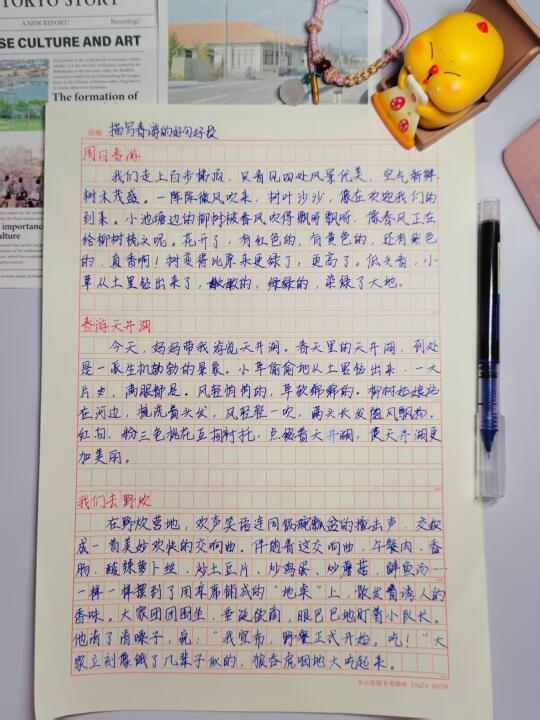 TOKYO STORY
A NEW REPORT!
Recording//
SE CULTURE AND ART
The formation of
importance
various
试卷 描写春游的好句好段
周日春游
我们走上百步梯顶,只看见四处风景优美,空气新鲜,
树木茂盛。一阵阵微风吹来,树叶沙沙,像在欢迎我们的
到来。小池塘边的柳树被春风吹得飘呀飘呀,像春风正在
给柳树梳头呢。花开了,有红色的,有黄色的,还有紫色
的,真香啊!树变得比原来更绿了,更高了。低头看,小
草从土里钻出来了,嫩嫩的,绿绿的,染绿了大地。
春游天井湖
今天,妈妈带我游览天井湖。春天里的天井湖,到处
是一派生机勃勃的景象。小草偷偷地从土里钻出来,一大
片,满眼都是。风轻悄悄的,草软绵绵的。柳树姑娘站
在河边,梳洗着头发,风轻轻一吹,满头长发随风飘扬。
红、白、粉三色桃花互相衬托,点缀着天井湖,使天井湖更
加美丽。
我们去野炊
在野炊营地,欢声笑语连同锅碗瓢盆的撞击声,交织
成一首美妙欢快的交响曲。伴随着这交响曲,午餐肉、香
肠、酸辣萝卜丝、炒土豆片、炒鸡蛋、炒蘑菇、鲜鱼汤……
一样一样摆到了用草席铺成的“地桌”上,散发着诱人的
香味。大家团团围坐,垂涎欲滴,眼巴巴地盯着小队长。
他清了清嗓子,说:“我宣布,野餐正式开始。吃!”大
家立刻像饿了几辈子似的,狼吞虎咽地大吃起来。